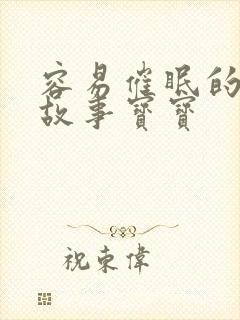 容易催眠的
故事寶寶
祝東偉